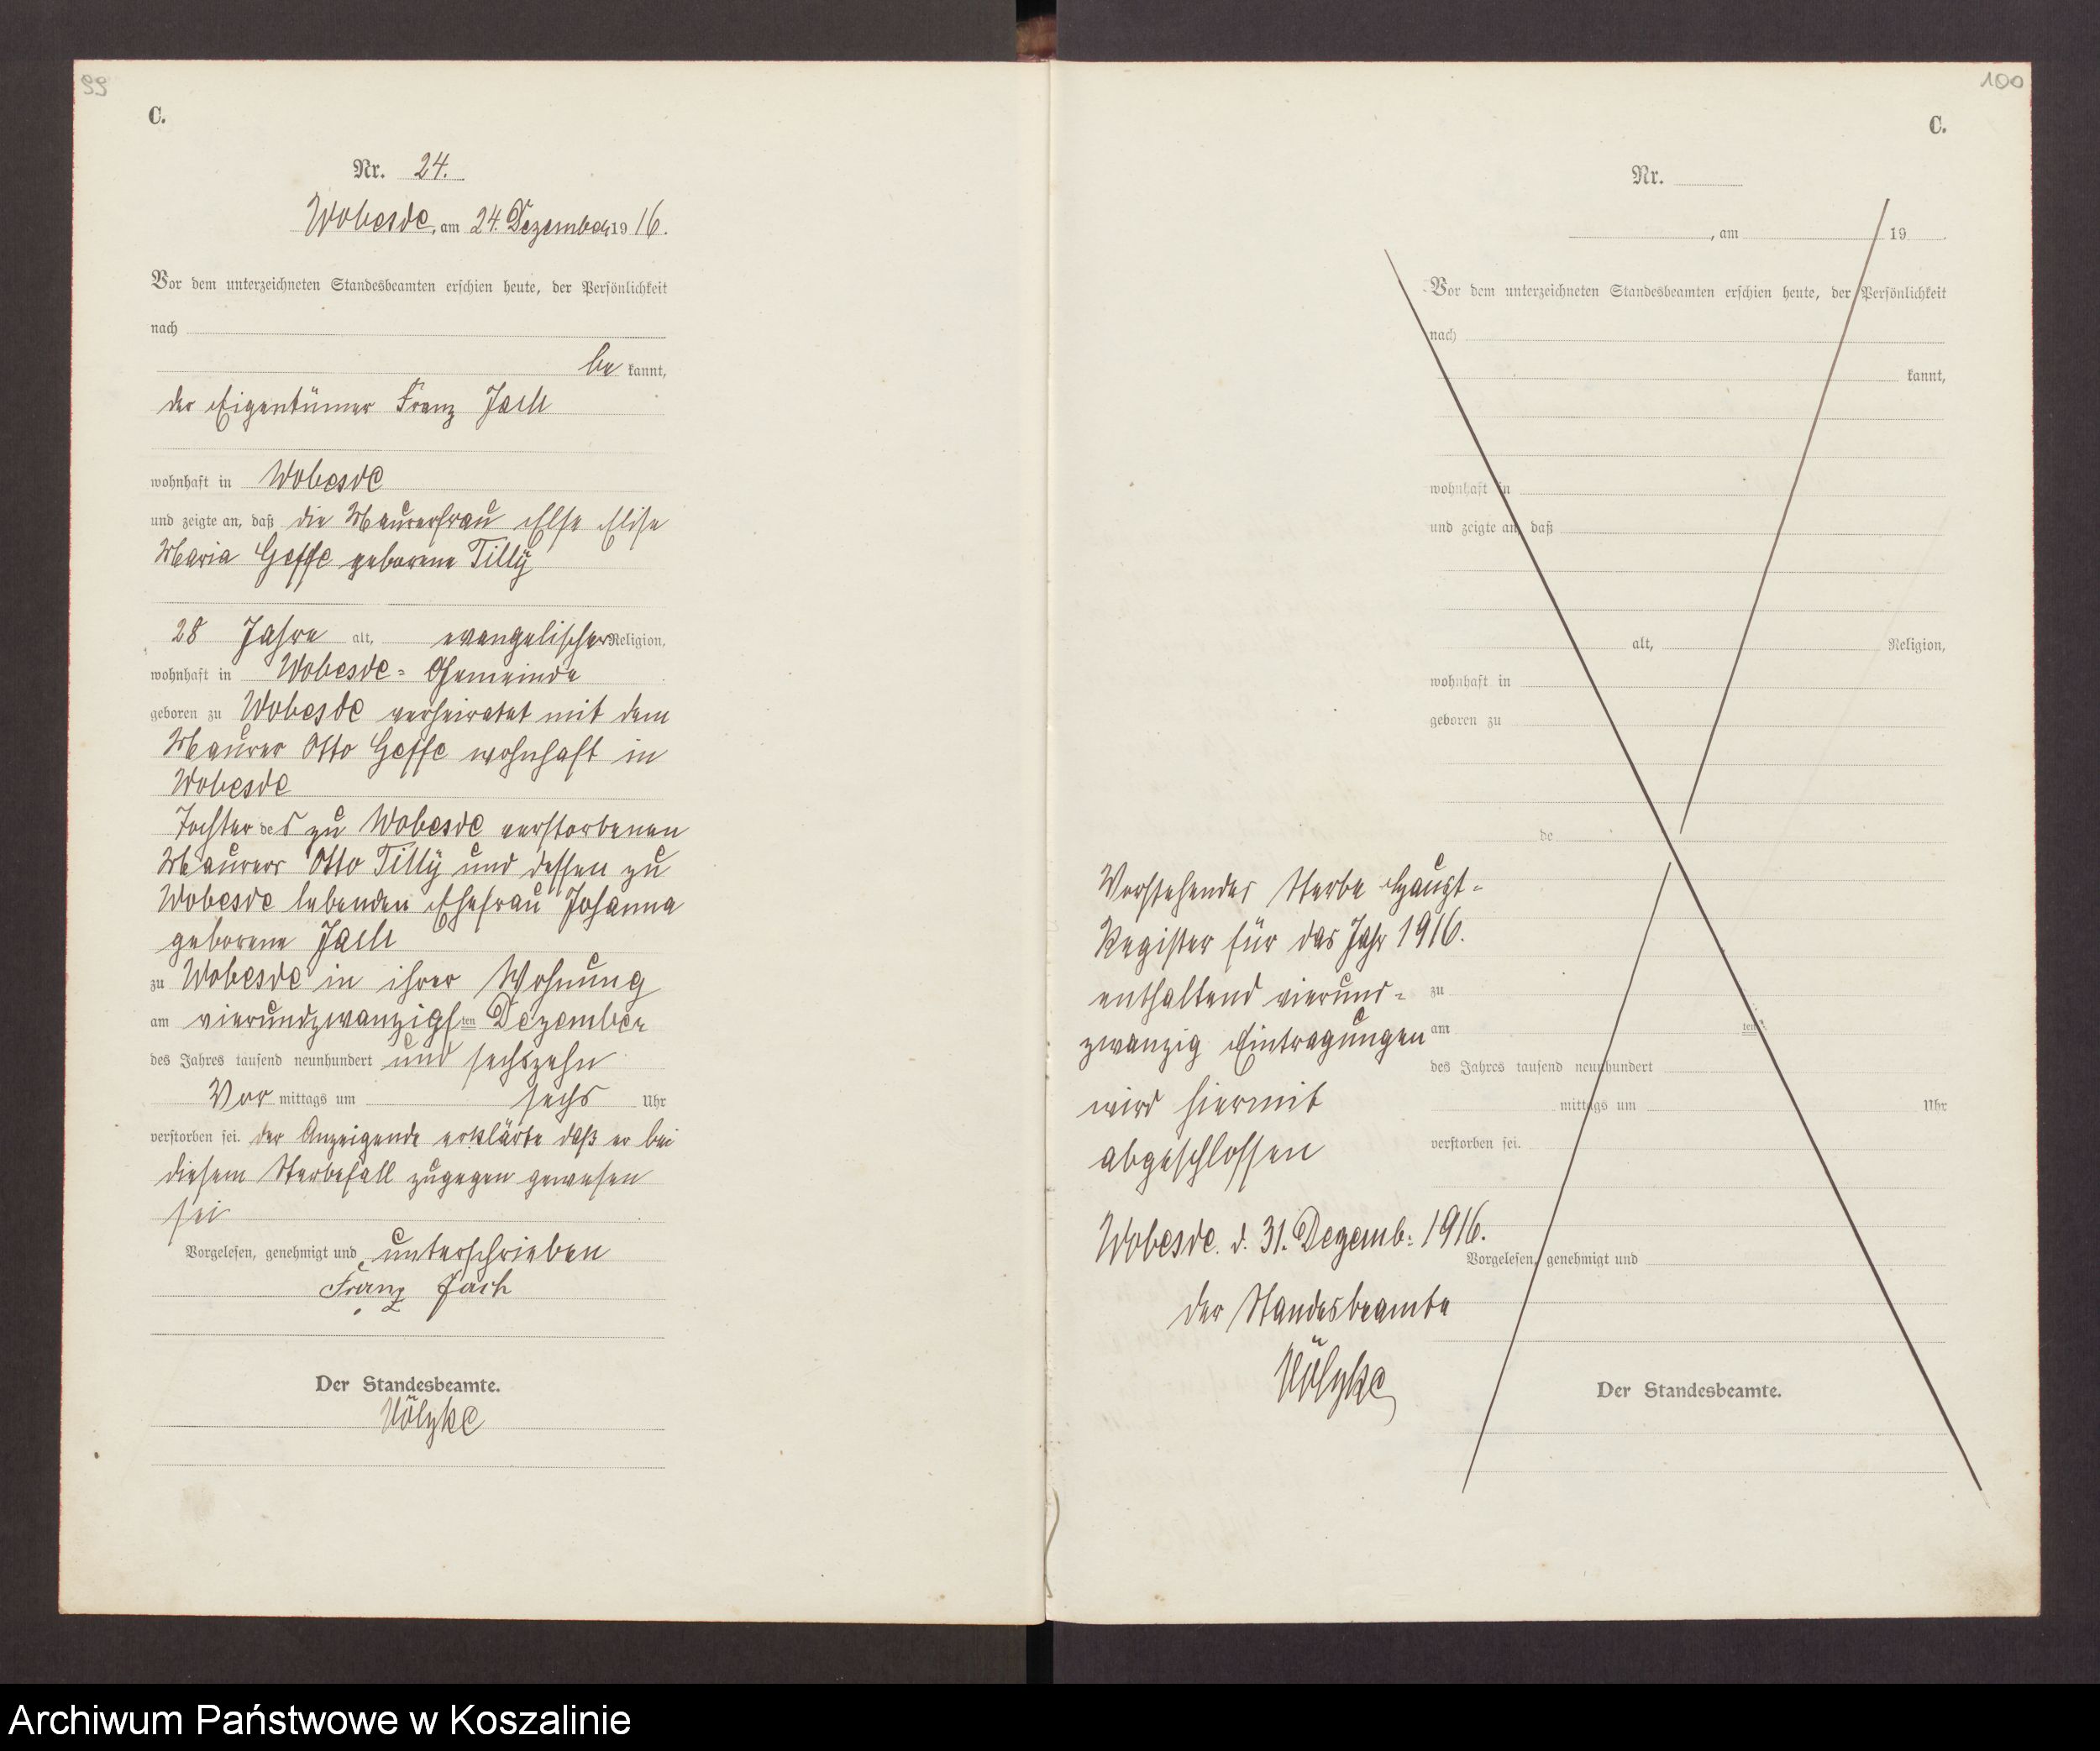 99
C.
Nr. 24.
Wobesde, am 24. Dezember 1916.
Vor dem unterzeichneten Standesbeamten erschien heute, der Persönlichkeit
nach
be kannt,
der Eigentümer Franz Jach
wohnhaft in Wobesde
und zeigte an, daß die Maurerfrau Else Elise
Maria Geffe geborene Tilly
28 Jahre alt, evangelischer Religion,
wohnhaft in Wobesde-Gemeinde
geboren zu Wobesde verheiratet mit dem
Maurer Otto Geffe wohnhaft in
Wobesde
Tochter des zu Wobesde verstorbenen
Maurers Otto Tilly und dessen zu
Wobesde lebenden Ehefrau Johanna
geborene Jach
zu Wobesde in ihrer Wohnung
am vierundzwanzigsten Dezember
des Jahres tausend neunhundert und sechszehn
Vor mittags um sechs Uhr
verstorben sei. der Anzeigende erklärte daß er bei
diesem Sterbefall zugegen gewesen
sei
Vorgelesen, genehmigt und unterschrieben
Franz Jach
Der Standesbeamte.
Völzke
100
C.
Nr.
, am 19 .
Vor dem unterzeichneten Standesbeamten erschien heute, der Persönlichkeit
nach
kannt,
wohnhaft in
und zeigte an, daß
alt, Religion,
wohnhaft in
geboren zu
de
zu
am ten
des Jahres tausend neunhundert
mittags um Uhr
verstorben sei.
Vorgelesen, genehmigt und
Der Standesbeamte.
Vorstehendes Sterbe Haupt-
Register für das Jahr 1916.
enthaltend vierund-
zwanzig Eintragungen
wird hiermit
abgeschlossen
Wobesde. d. 31. Dezemb: 1916.
Der Standesbeamte
Völzke
Archiwum Państwowe w Koszalinie